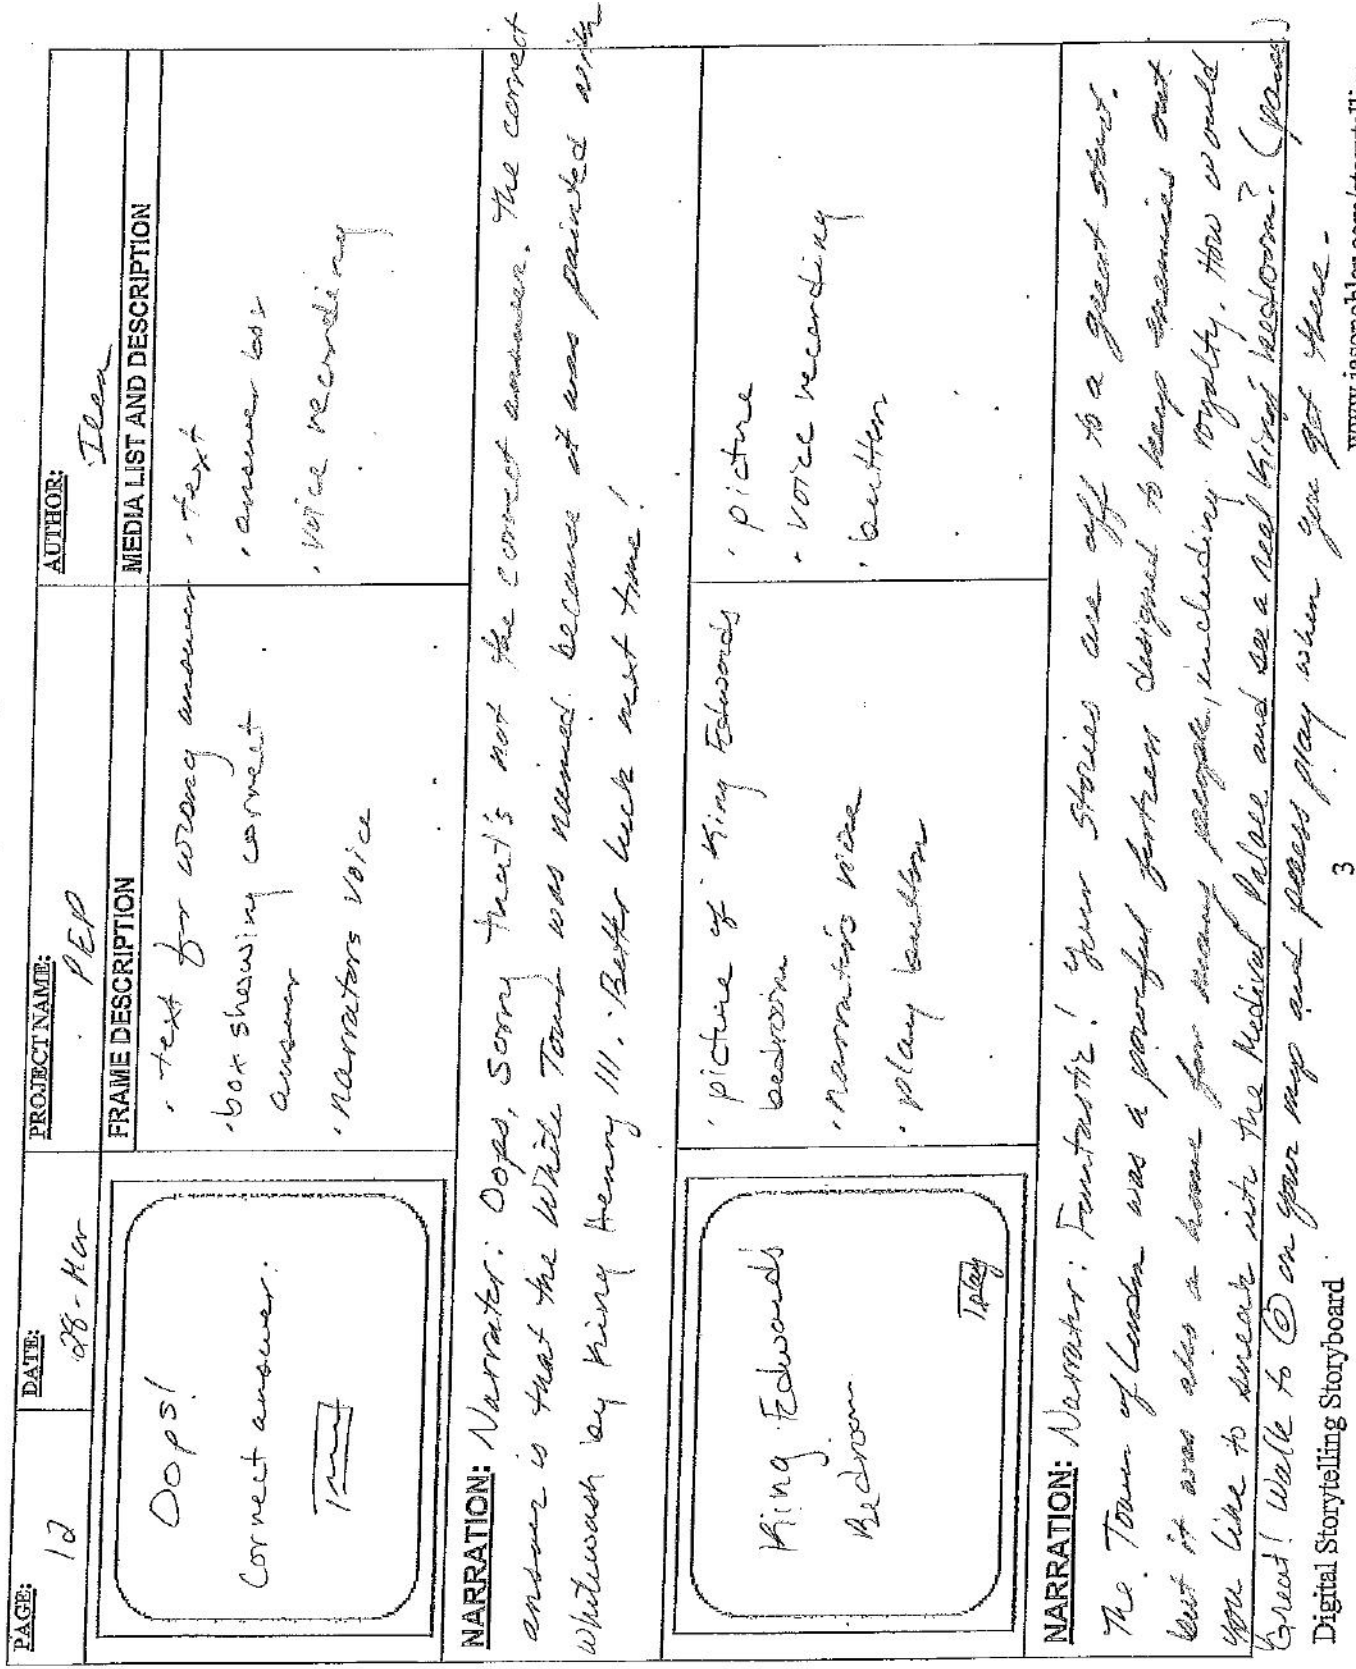 PAGE: 12
DATE: 28-Mar
PROJECT NAME: PEP
AUTHOR: Ilea
FRAME DESCRIPTION
MEDIA LIST AND DESCRIPTION
Oops!
Correct answer:
True
· text for wrong answer
· box showing correct
answer
· narrators voice
· text
· answer box
· voice recording
NARRATION: Narrator: Oops, sorry that's not the correct answer. The correct
answer is that the White Tower was named because it was painted with
whitewash by King Henry III. Better luck next time!
King Edwards
Bedroom
Play
· picture of King Edwards
bedroom
· narrator's voice
· play button
· picture
· voice recording
· button
NARRATION: Narrator: Fantastic! Your stories are off to a great start.
The Tower of London was a powerful fortress designed to keep enemies out
but it was also a home for many people, including royalty. How would
you like to sneak into the Medival Palace and see a real King's bedroom? (pause)
Great! Walk to on your map and press play when you get there.
Digital Storytelling Storyboard
3